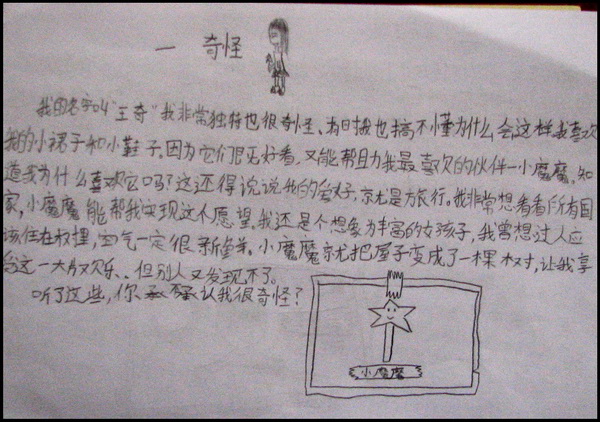 一 奇怪
我的名字叫“王奇”我非常独特也很奇怪、有时我也搞不懂为什么会这样,我喜欢
我的小裙子和小鞋子,因为它们既好看,又能帮助我最喜欢的伙伴一小魔魔,知
道我为什么喜欢它吗?这还得说说我的爱好,就是旅行,我非常想看看所有国
家,小魔魔能帮我实现这个愿望,我还是个想象力丰富的女孩子,我曾想过人应
该住在树里,空气一定很新鲜,小魔魔就把屋子变成了一棵树,让我享
受这一大欢乐、但别人又发现不了。
听了这些,你承不承认我很奇怪?
小魔魔